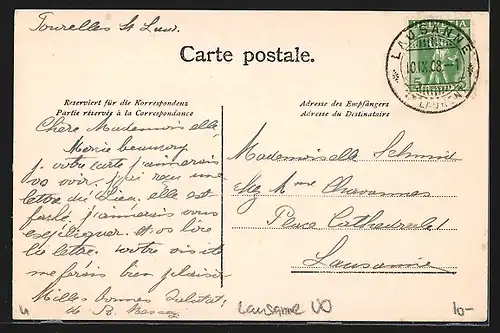 Tourelles St Laur.
Carte postale.
HELVETIA
LAUSANNE
10.IX.08.
Reserviert für die Korrespondenz
Partie réservée à la Correspondance
Adresse des Empfängers
Adresse du Destinataire
Chère Mademoiselle
Marie
p. votre carte j'aimerais
vs voir. j'ai reçu une
lettre de elle est
j'aimerais vous
et vs lire
la lettre. votre visite
me ferais bien plaisir
Milles bonnes
de B.
Mademoiselle Schmid
chez Mme Chavannes
Place Cathédrale 1
Lausanne
Lausanne VD
10-